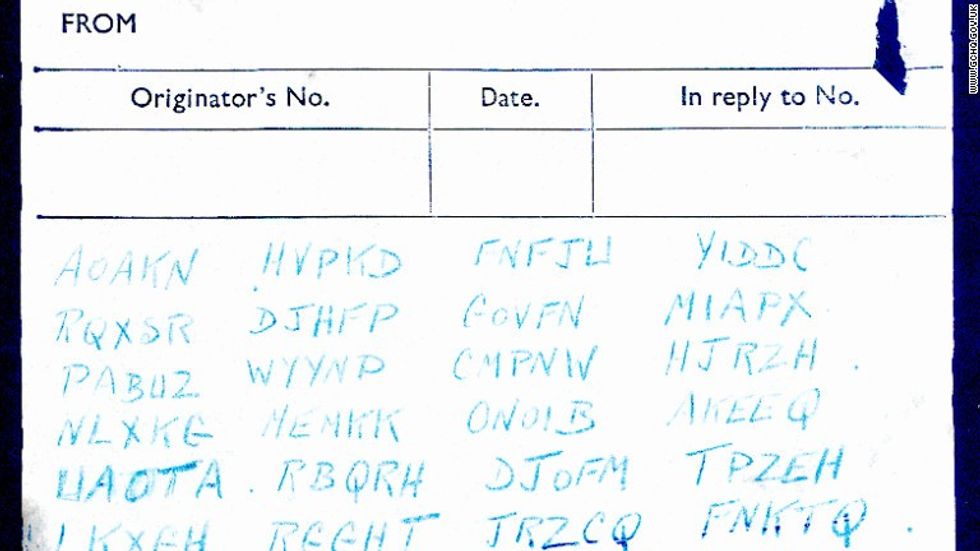 WWW.GCHQ.GOV.UK
FROM
Originator's No. Date. In reply to No.
AOAKN HVPKD FNFJW YIDDC
RQXSR DJHFP GOVFN MIAPX
PABUZ WYYNP CMPNW HJRZH
NLXKG MEMKK ONOIB AKEEQ
UAOTA RBQRH DJOFM TPZEH
LKXGH RGGHT JRZCQ FNKTQ